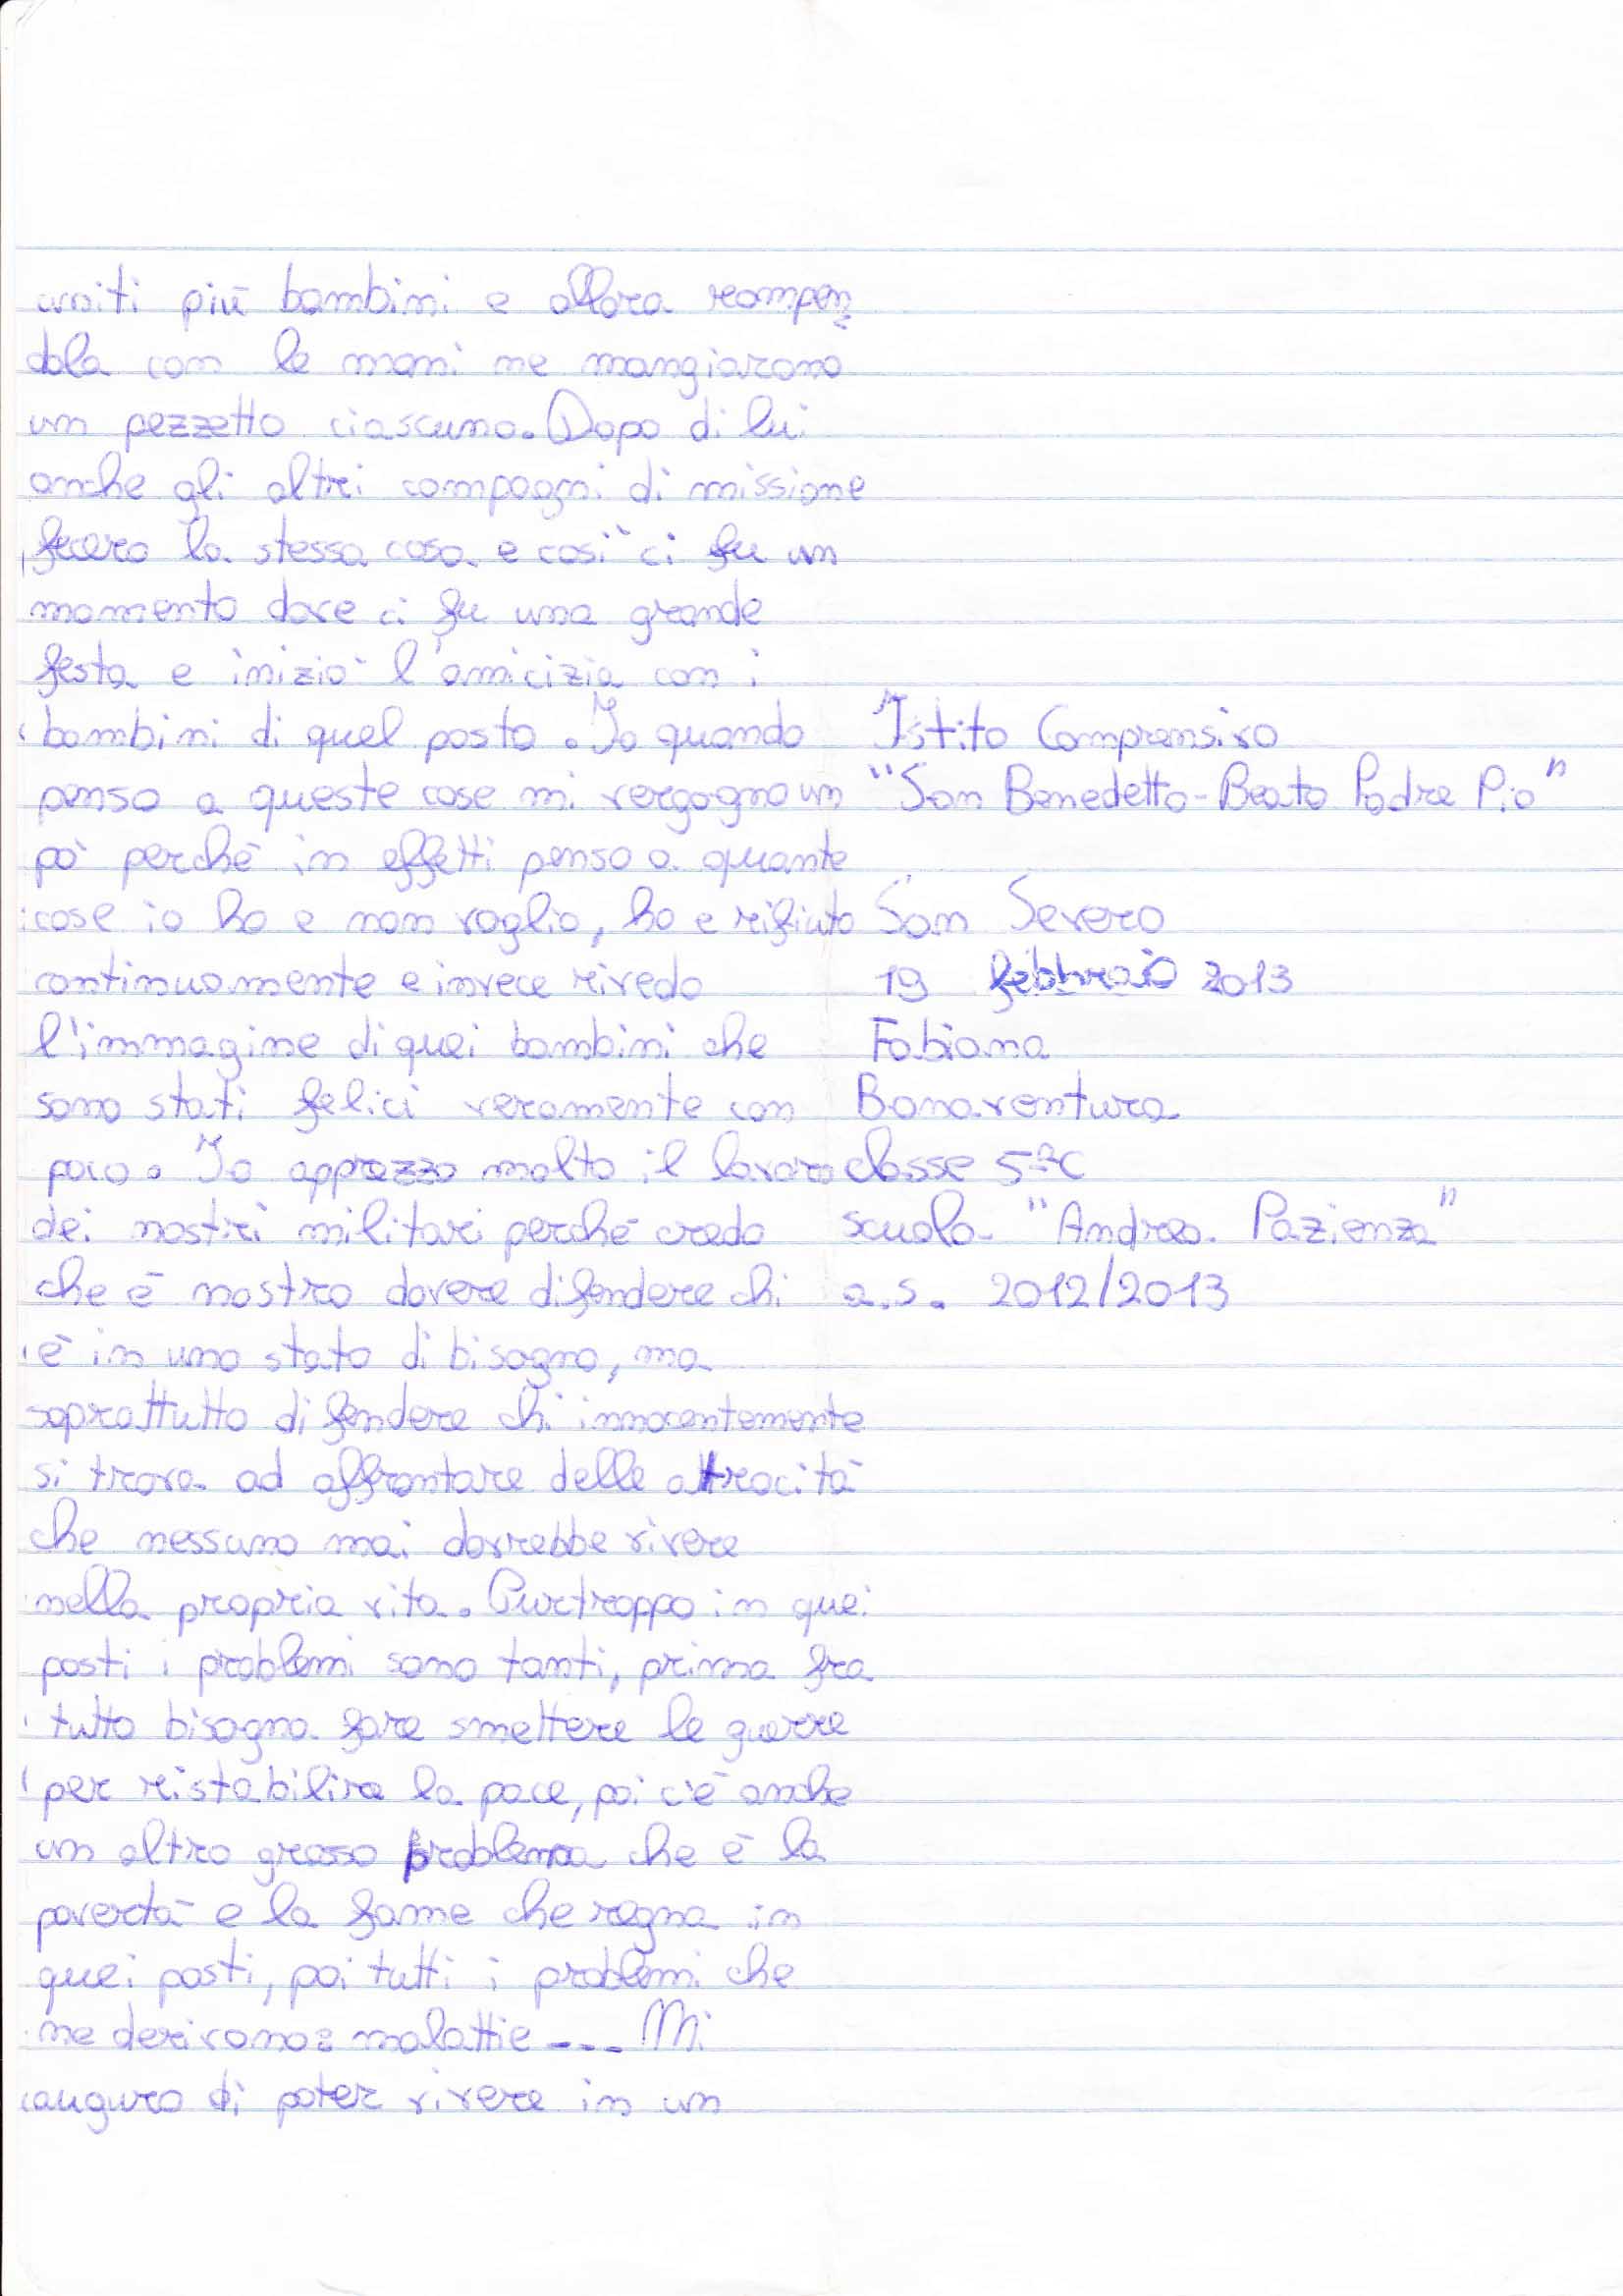 uniti più bambini e allora rompen
dola con le mani ne mangiarono
un pezzetto ciascuno. Dopo di lui
anche gli altri compagni di missione
fecero la stessa cosa e così ci fu un
momento dove ci fu una grande
festa e iniziò l'amicizia con i
bambini di quel posto. Io quando
penso a queste cose mi vergogno un
pò perché in effetti penso a quante
cose io ho e non voglio, ho e rifiuto
continuamente e invece rivedo
l'immagine di quei bambini che
sono stati felici veramente con
poco. Io apprezzo molto il lavoro
dei nostri militari perché credo
che è nostro dovere difendere chi
è in uno stato di bisogno, ma
soprattutto difendere chi innocentemente
si trova ad affrontare delle attrocità
che nessuno mai dovrebbe vivere
nella propria vita. Purtroppo in quei
posti i problemi sono tanti, prima fra
tutto bisogna fare smettere le guerre
per ristabilire la pace, poi c'è anche
un altro grosso problema che è la
povertà e la fame che regna in
quei posti, poi tutti i problemi che
ne derivano: malattie --- Mi
auguro di poter vivere in un
Istito Comprensivo
"San Benedetto-Beato Padre Pio"
San Severo
19 febbraio 2013
Fabiana
Bonaventura
classe 5ªC
scuola "Andrea Pazienza"
a.s. 2012/2013